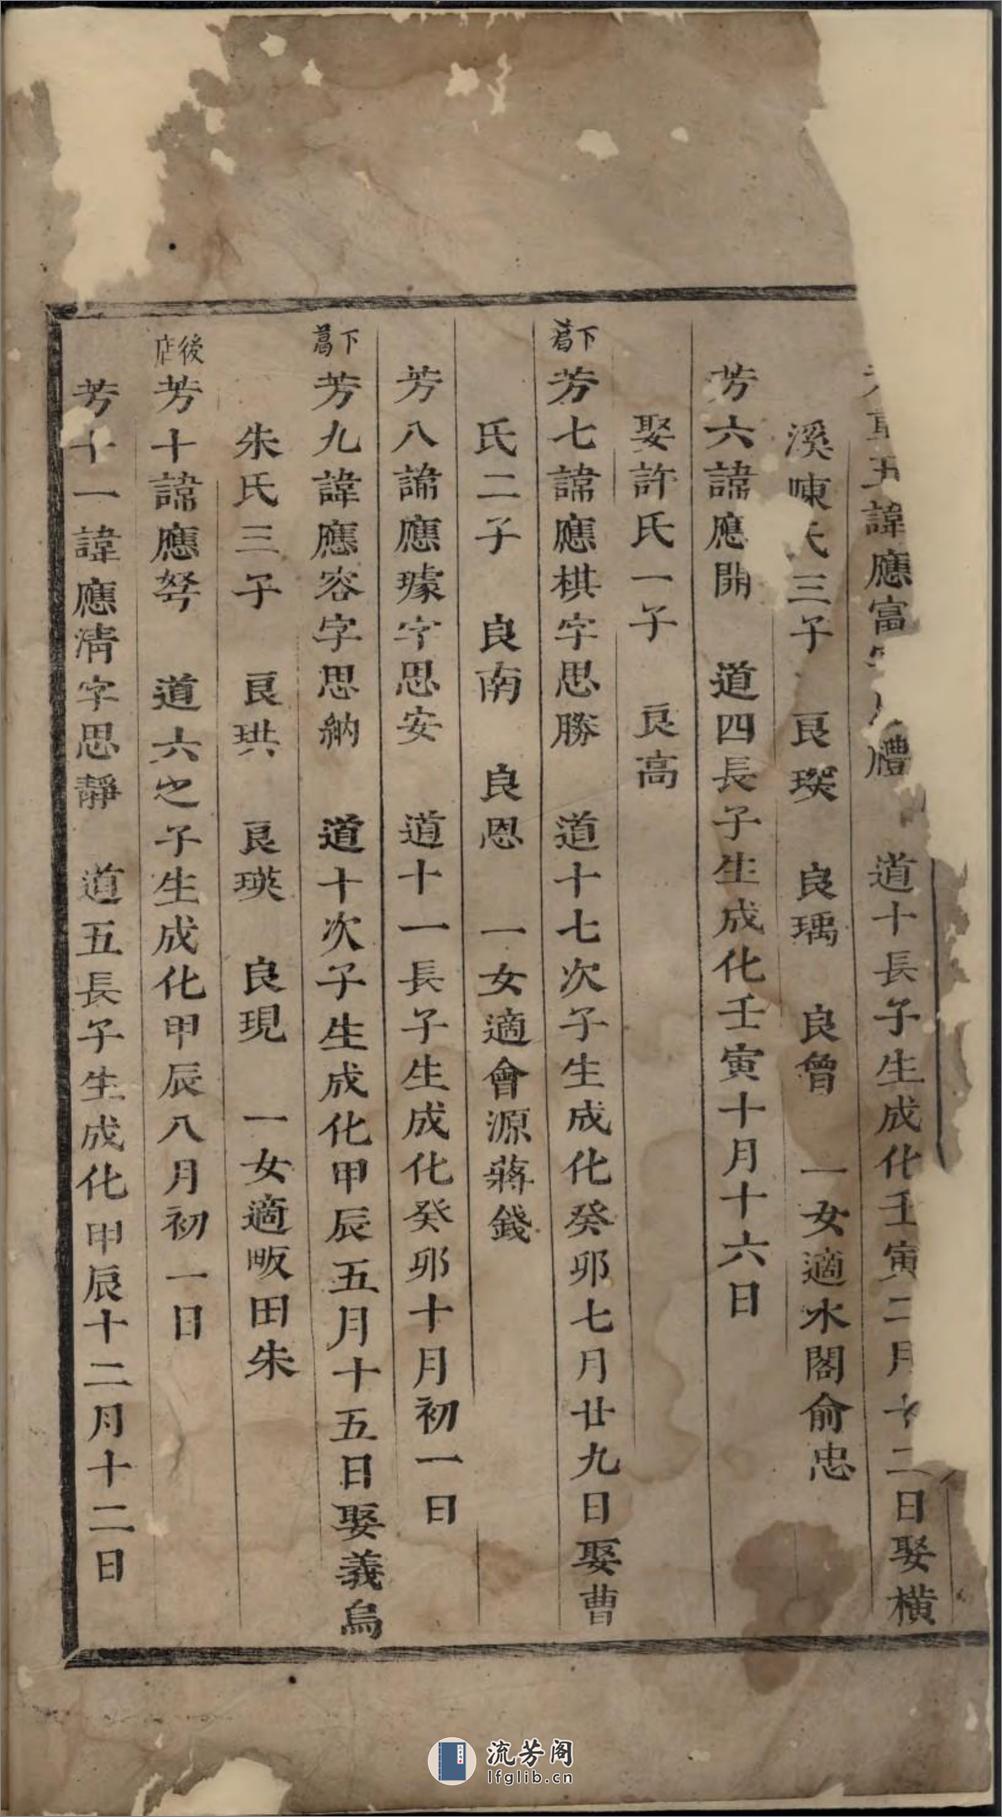 五諱應富 禮 道十長子生成化壬寅二月十二日娶橫
溪陳氏三子 良瑛 良瑀 良曾 一女適水閣俞忠
芳六諱應開 道四長子生成化壬寅十月十六日
娶許氏一子 良高
下葛
芳七諱應棋字思勝 道十七次子生成化癸卯七月廿九日娶曹
氏二子 良南 良恩 一女適會源蔣錢
芳八諱應璩字思安 道十一長子生成化癸卯十月初一日
下葛
芳九諱應容字思納 道十次子生成化甲辰五月十五日娶義烏
朱氏三子 良珙 良瑛 良現 一女適畈田朱
後店
芳十諱應弩 道六之子生成化甲辰八月初一日
芳十一諱應清字思靜 道五長子生成化甲辰十二月十二日
流芳阁
lfglib.cn